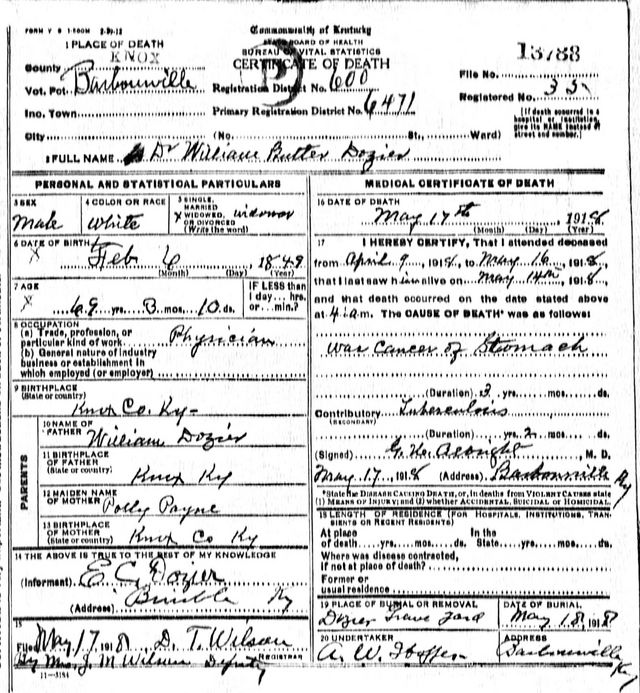 FORM V S 1-500M 2-21-12
Commonwealth of Kentucky
STATE BOARD OF HEALTH
BUREAU OF VITAL STATISTICS
CERTIFICATE OF DEATH
13788
1 PLACE OF DEATH
KNOX
County
Vot. Pct. Barbourville
Inc. Town
Registration District No. 600
Primary Registration District No. 6471
File No.
Registered No. 35
[If death occurred in a hospital or institution, give its NAME instead of street and number.]
City (No. St., Ward)
2 FULL NAME Dr William Butter Dozier
PERSONAL AND STATISTICAL PARTICULARS
3 SEX
Male
4 COLOR OR RACE
White
5 SINGLE, MARRIED X WIDOWED, OR DIVORCED (Write the word)
widower
6 DATE OF BIRTH
X Feb 6 1849
(Month) (Day) (Year)
7 AGE
X 69 yrs. 3 mos. 10 ds.
IF LESS than 1 day... hrs. or... min.?
8 OCCUPATION
(a) Trade, profession, or particular kind of work Physician
(b) General nature of industry business or establishment in which employed (or employer)
9 BIRTHPLACE
(State or country)
Knox Co. Ky-
PARENTS
10 NAME OF FATHER
William Dozier
11 BIRTHPLACE OF FATHER
(State or country)
Knox Ky
12 MAIDEN NAME OF MOTHER
Polly Payne
13 BIRTHPLACE OF MOTHER
(State or country)
Knox Co Ky
14 THE ABOVE IS TRUE TO THE BEST OF MY KNOWLEDGE
(Informant) E. C. Dozier
(Address) Ky
15
Filed May 17 1918 D. T. Wilson
REGISTRAR
By Mrs. J. M Wilson Deputy
11-3184
MEDICAL CERTIFICATE OF DEATH
16 DATE OF DEATH
May 17th 1918
(Month) (Day) (Year)
17 I HEREBY CERTIFY, That I attended deceased
from April 9, 1918, to May 16, 1918
that I last saw him alive on May 14th, 1918
and that death occurred on the date stated above
at 4 a.m. The CAUSE OF DEATH* was as follows:
was cancer of Stomach
(Duration) 3 yrs. mos. ds.
Contributory Tuberculosis
(SECONDARY)
(Duration) yrs. 2 mos. ds.
(Signed) M. D.
May 17, 1918 (Address) Barbourville Ky
*State the DISEASE CAUSING DEATH, or, in deaths from VIOLENT CAUSES state (1) MEANS OF INJURY; (2) whether ACCIDENTAL, SUICIDAL or HOMICIDAL.
18 LENGTH OF RESIDENCE (FOR HOSPITALS, INSTITUTIONS, TRANSIENTS OR RECENT RESIDENTS)
At place of death yrs. mos. ds. In the State yrs. mos. ds.
Where was disease contracted,
If not at place of death?
Former or usual residence
19 PLACE OF BURIAL OR REMOVAL
Dozier Grave Yard
DATE OF BURIAL
May 18 1918
20 UNDERTAKER
A. W. Hopper
ADDRESS
Barbourville Ky